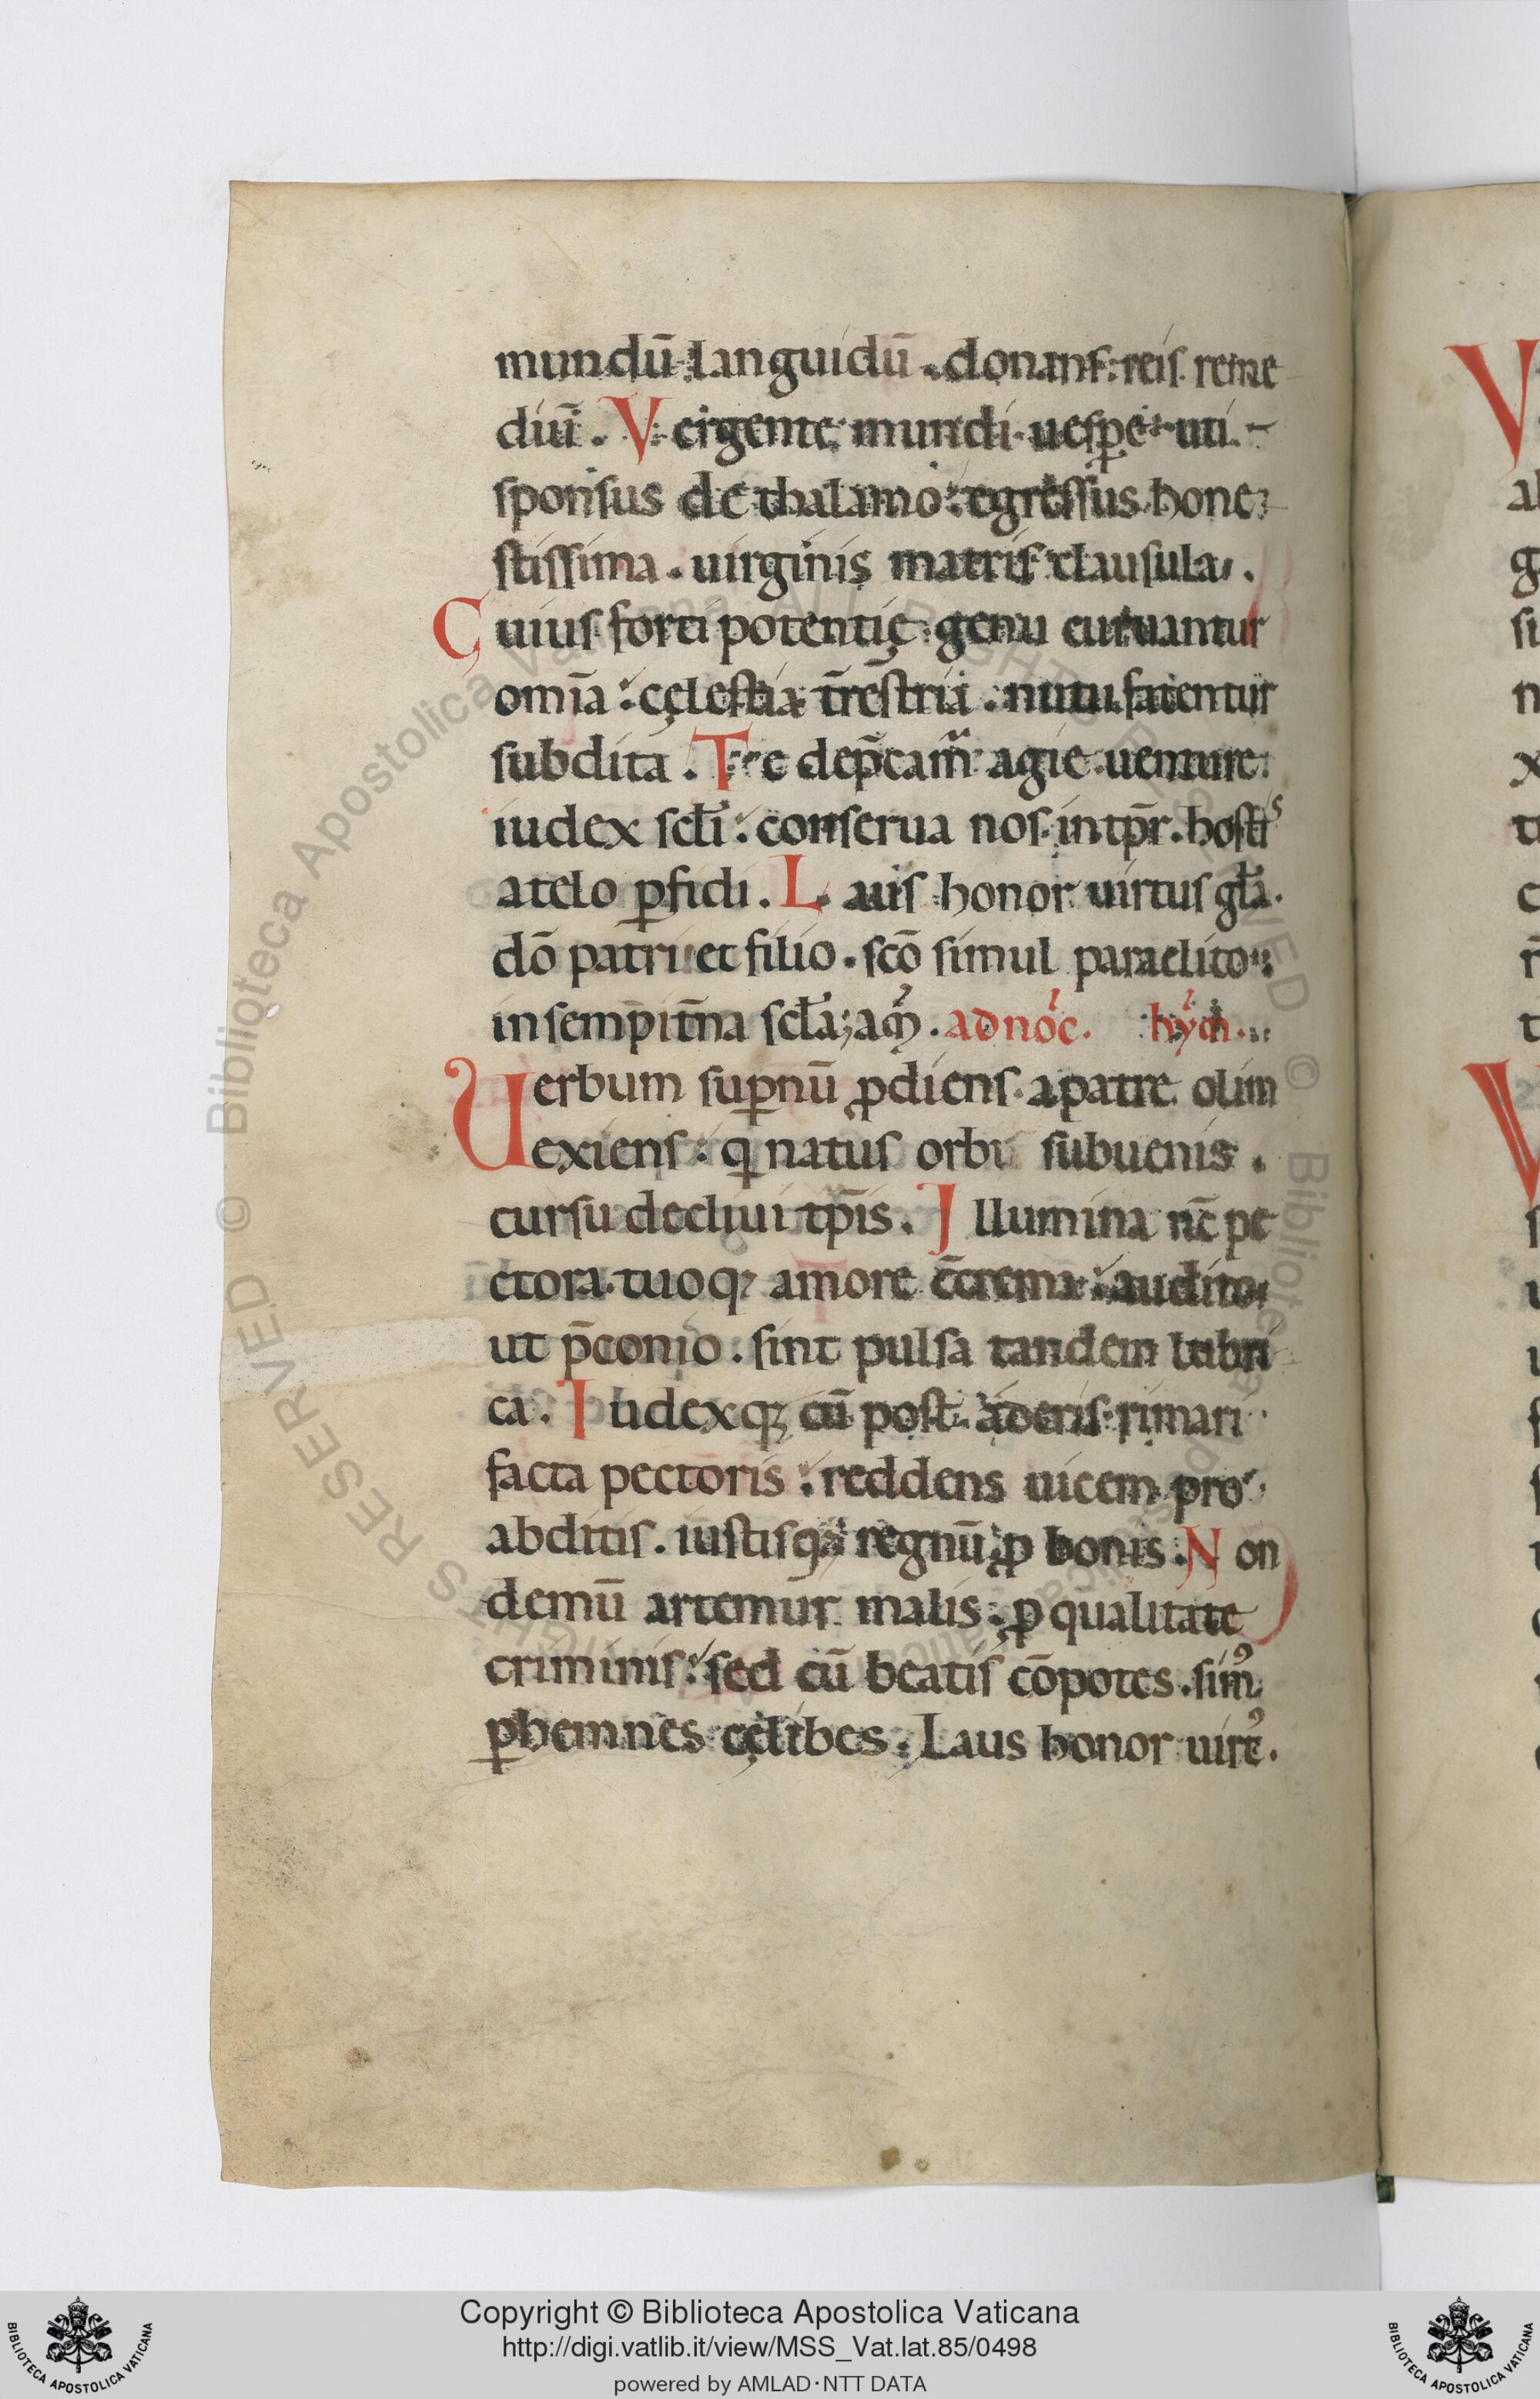 mundū languidū. donans reis reme
diū. Vergente mundi uesꝑe uti
sponsus de thalamo egressus hone
stissima. uirginis matris clausula.
Cuius forti potentię genu curuantur
om̄ia: cęlestia tr̄estria. nutu fatentur
subdita. Te dep̄cam̄ agie uenture
iudex scl̄i: conserua nos intp̄r. hosti^s
atelo ꝑfidi. Laus honor uirtus gl̄a.
dō patri et filio. scō simul paraclito
insemp̄it̄na scl̄a; am̄. ad noc̄. hym̄.
Uerbum suꝑnū ꝓdiens apatre olim
exiens: q natus orbi subuenis.
cursu decliui tp̄is. Illumina nc̄ pe
ctora tuoqꝫ amore c̄crema: audito
ut p̄conio. sint pulsa tandem lubri
ca. Iudexqꝫ cū post aderis rimari
facta pectoris: reddens uicem pro
abditis. iustisqꝫ regnū ꝓ bonis. Non
demū artemur malis. ꝓ qualitate
criminis: sed cū beatis cōpotes. simꝰ
ꝑhennes cęlibes. Laus honor uirt̄.
Copyright © Biblioteca Apostolica Vaticana
http://digi.vatlib.it/view/MSS_Vat.lat.85/0498
powered by AMLAD·NTT DATA